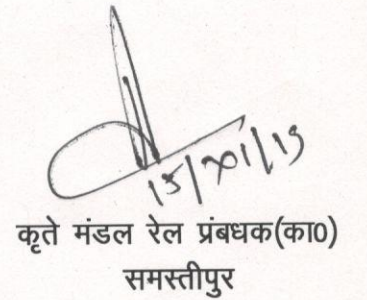 15/XI/13
कृते मंडल रेल प्रंबधक(का0)
समस्तीपुर